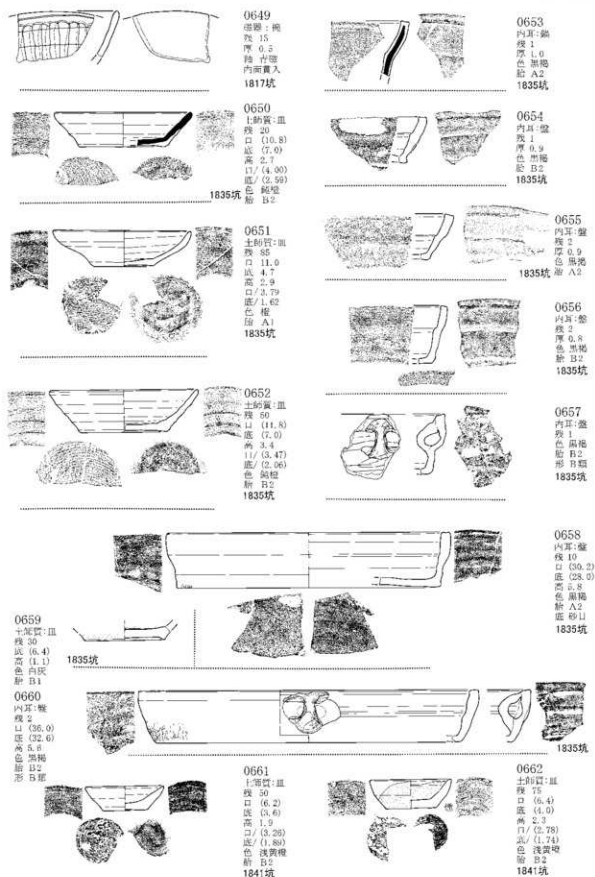 0649
磁器:碗
残 15
厚 0.5
釉 青磁
内面貫入
1817坑
0650
土師質:皿
残 20
口 (10.8)
底 (7.0)
高 2.7
口/ (4.00)
底/ (2.59)
色 鈍橙
胎 B2
1835坑
0651
土師質:皿
残 85
口 11.0
底 4.7
高 2.9
口/ 3.79
底/ 1.62
色 橙
胎 A1
1835坑
0652
土師質:皿
残 50
口 (11.8)
底 (7.0)
高 3.4
口/ (3.47)
底/ (2.06)
色 鈍橙
胎 B2
1835坑
0653
内耳:鍋
残 1
厚 1.0
色 黒褐
胎 A2
1835坑
0654
内耳:盤
残 1
厚 0.9
色 黒褐
胎 B2
1835坑
0655
内耳:盤
残 2
厚 0.9
色 黒褐
胎 A2
1835坑
0656
内耳:盤
残 2
厚 0.8
色 黒褐
胎 B2
1835坑
0657
内耳:盤
残 1
色 黒褐
胎 B2
形 B類
1835坑
0658
内耳:盤
残 10
口 (30.2)
底 (28.0)
高 5.8
色 黒褐
胎 A2
底 砂目
1835坑
0659
土師質:皿
残 30
底 (6.4)
高 (1.1)
色 白灰
胎 B1
1835坑
0660
内耳:盤
残 2
口 (36.0)
底 (32.6)
高 5.8
色 黒褐
胎 B2
形 B類
1835坑
0661
土師質:皿
残 50
口 (6.2)
底 (3.6)
高 1.9
口/ (3.26)
底/ (1.89)
色 浅黄橙
胎 B2
1841坑
0662
土師質:皿
残 75
口 (6.4)
底 (4.0)
高 2.3
口/ (2.78)
底/ (1.74)
色 浅黄橙
胎 B2
1841坑